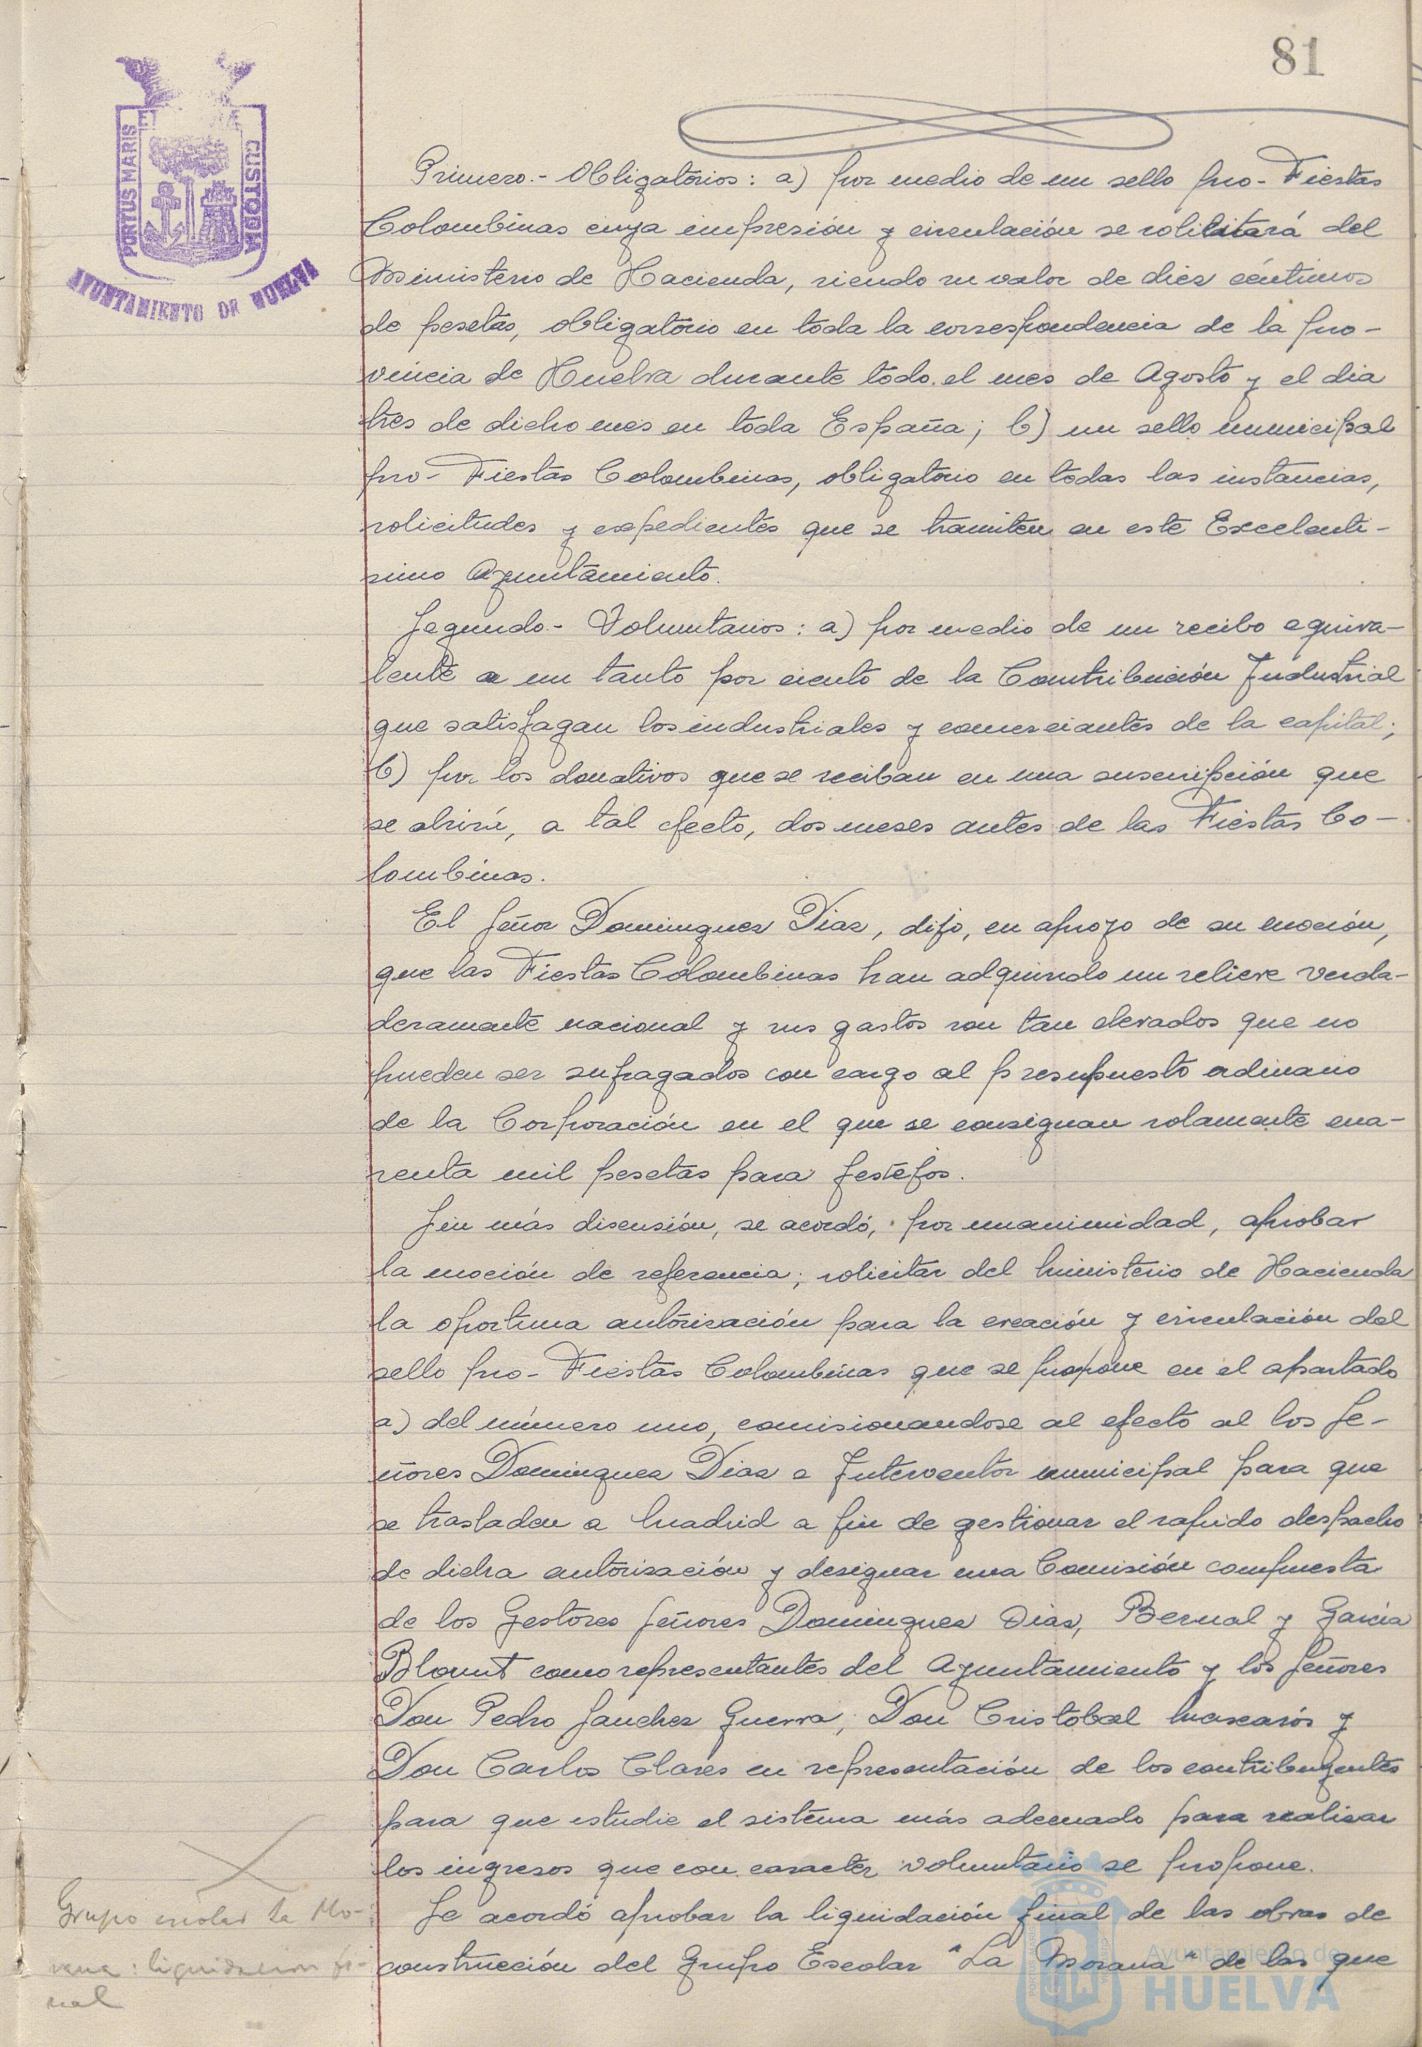 81
PORTUS MARIS ET TERRAE CUSTODIA
AYUNTAMIENTO DE HUELVA
Primero.- Obligatorios: a) por medio de un sello pro-Fiestas
Colombinas cuya impresión y circulación se solicitará del
Ministerio de Hacienda, siendo su valor de diez céntimos
de pesetas, obligatorio en toda la correspondencia de la pro-
vincia de Huelva durante todo el mes de Agosto y el dia
tres de dicho mes en toda España; b) un sello municipal
pro-Fiestas Colombinas, obligatorio en todas las instancias,
solicitudes y expedientes que se tramiten en este Excelenti-
simo Ayuntamiento.
Segundo.- Voluntarios: a) por medio de un recibo equiva-
lente a un tanto por ciento de la Contribución Industrial
que satisfagan los industriales y comerciantes de la capital;
b) por los donativos que se reciban en una suscripción que
se abrirá, a tal efecto, dos meses antes de las Fiestas Co-
lombinas.
El Señor Dominguez Diaz, dijo, en apoyo de su moción,
que las Fiestas Colombinas han adquirido un relieve verda-
deramente nacional y sus gastos son tan elevados que no
pueden ser sufragados con cargo al presupuesto ordinario
de la Corporación en el que se consignan solamente cua-
renta mil pesetas para festejos.
Sin más discusión, se acordó, por unanimidad, aprobar
la moción de referencia; solicitar del Ministerio de Hacienda
la oportuna autorización para la creación y circulación del
sello pro-Fiestas Colombinas que se propone en el apartado
a) del número uno, comisionandose al efecto al los Se-
ñores Dominguez Diaz e Interventor municipal para que
se trasladen a Madrid a fin de gestionar el rapido despacho
de dicha autorización y designar una Comisión compuesta
de los Gestores Señores Dominguez Diaz, Bernal y Garcia
Blount como representantes del Ayuntamiento y los Señores
Don Pedro Sánchez Guerra, Don Cristobal Mascarós y
Don Carlos Clares en representación de los contribuyentes
para que estudie el sistema más adecuado para realizar
los ingresos que con caracter voluntario se propone.
Grupo escolar la Mo-
rana: liquidacion fi-
nal
Se acordó aprobar la liquidación final de las obras de
construcción del Grupo Escolar "La Morana" de las que
Ayuntamiento de
HUELVA